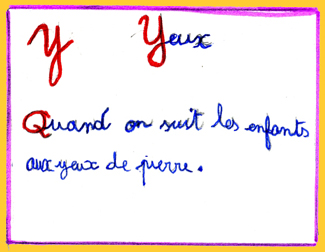 Y Yeux
Quand on suit les enfants
aux yeux de pierre.